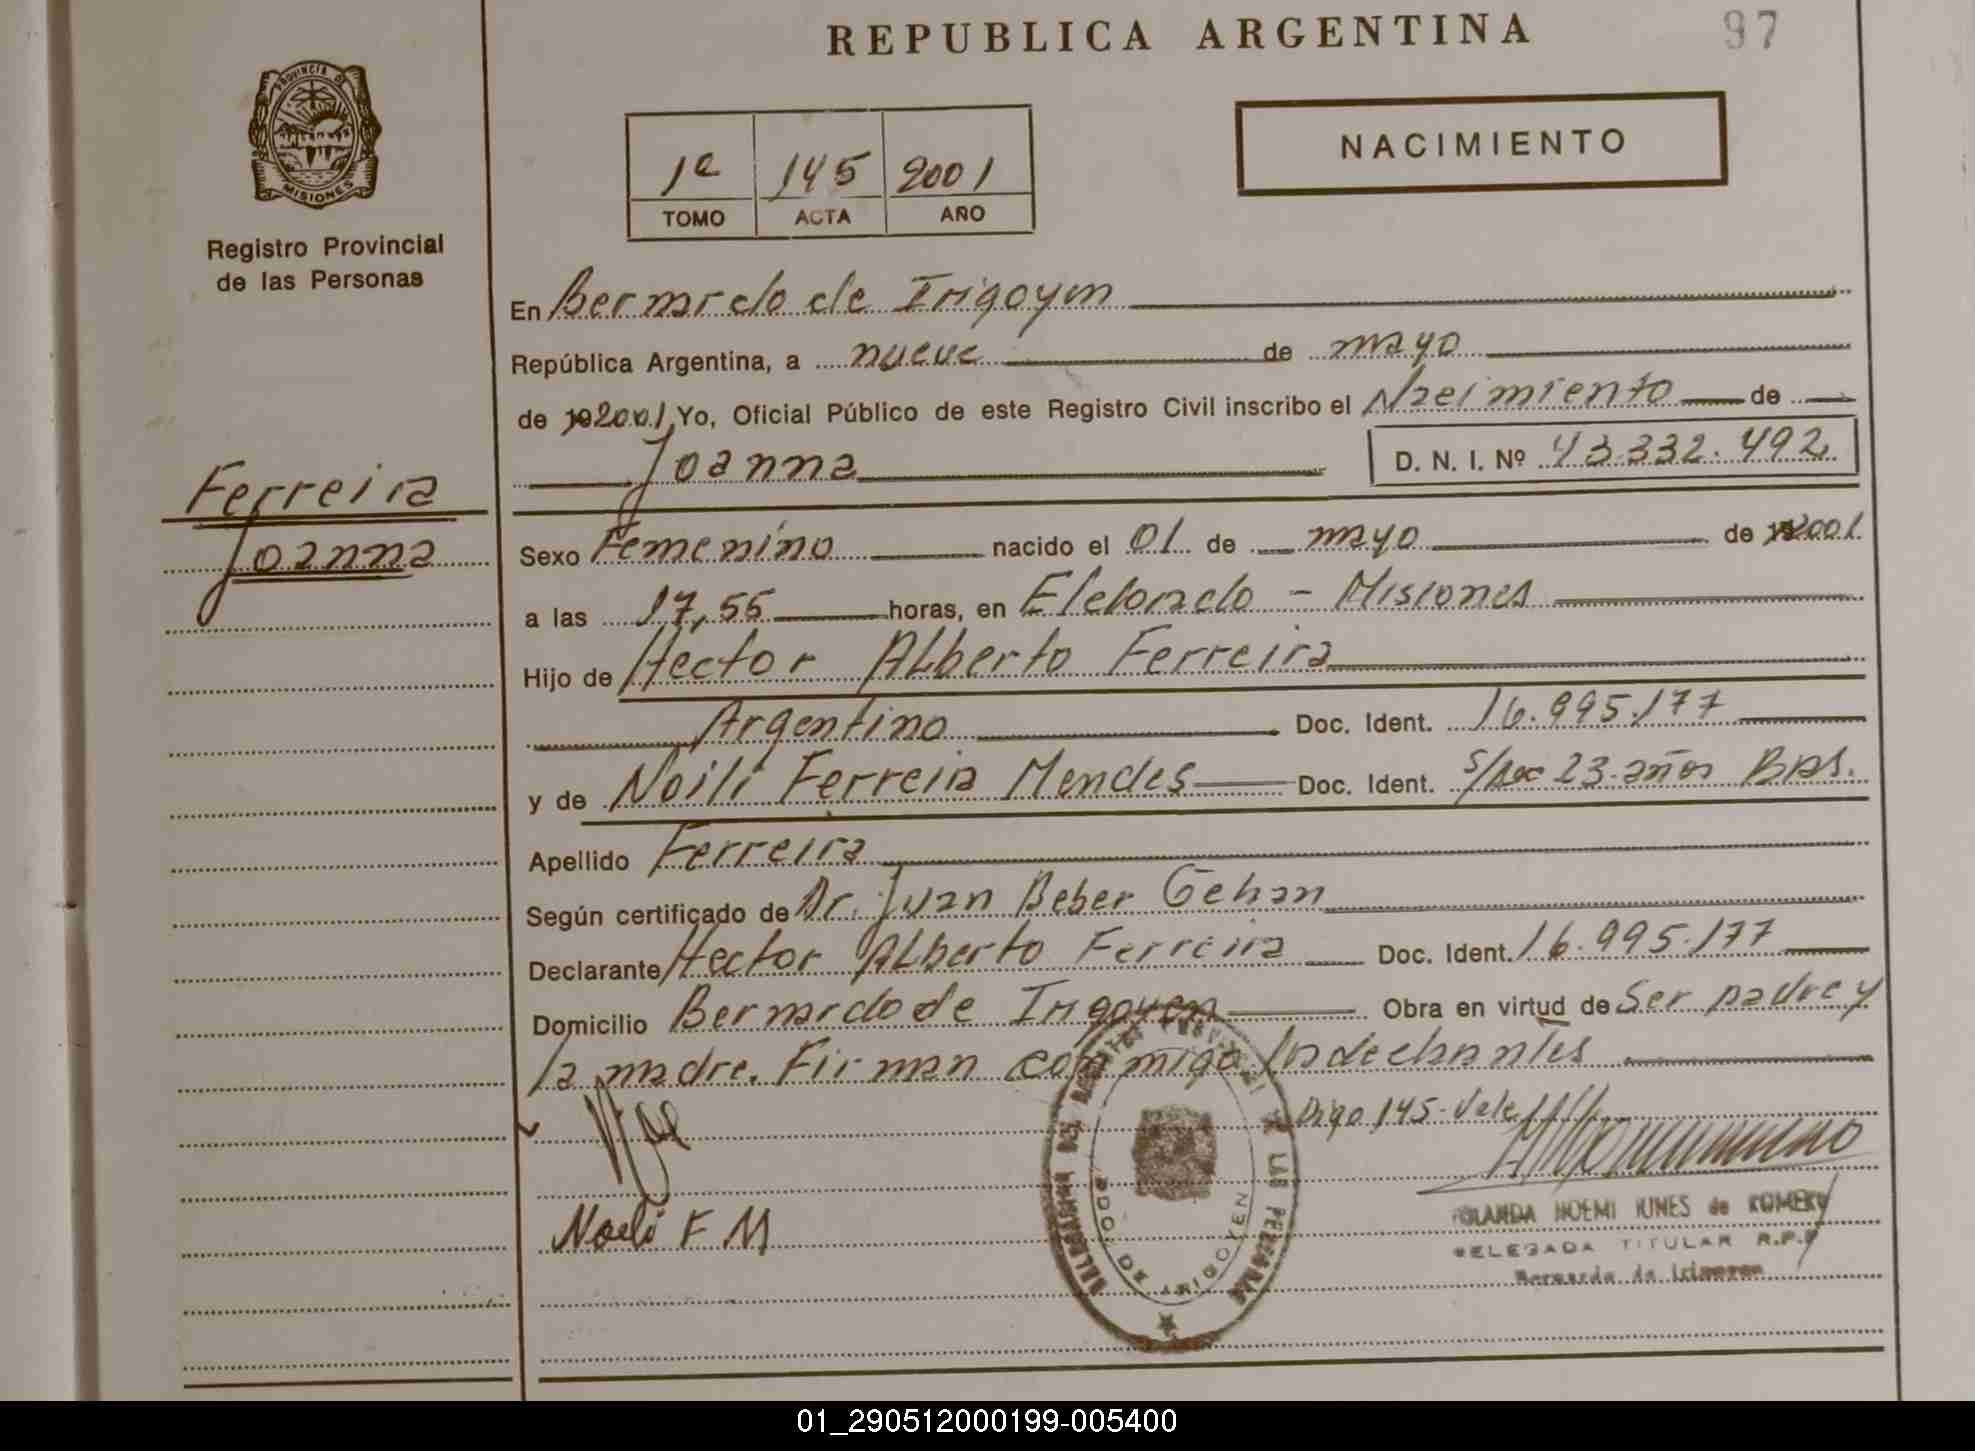 REPUBLICA ARGENTINA
97
PROVINCIA DE
MISIONES
Registro Provincial
de las Personas
NACIMIENTO
1º 145 2001
TOMO ACTA AÑO
En Bernardo de Irigoyen
República Argentina, a nueve de mayo
de 2001 Yo, Oficial Público de este Registro Civil inscribo el Nacimiento de
Joanna D. N. I. Nº 43.332.492
Ferreira
Joanna
Sexo Femenino nacido el 01 de mayo de 2001
a las 17,55 horas, en Eldorado - Misiones
Hijo de Hector Alberto Ferreira
Argentino Doc. Ident. 16.995.177
y de Noili Ferreira Mendes Doc. Ident. s/doc 23 años Bras.
Apellido Ferreira
Según certificado de Dr. Juan Beber Gehan
Declarante Hector Alberto Ferreira Doc. Ident. 16.995.177
Domicilio Bernardo de Irigoyen Obra en virtud de Ser padre y
la madre. Firman conmigo
Digo 145-Vale
Noeli F M
NOEMI de
DELEGADA TITULAR R.P.P
Bernardo de Irigoyen
DE LAS PERSONAS
BDO. DE IRIGOYEN
01_290512000199-005400